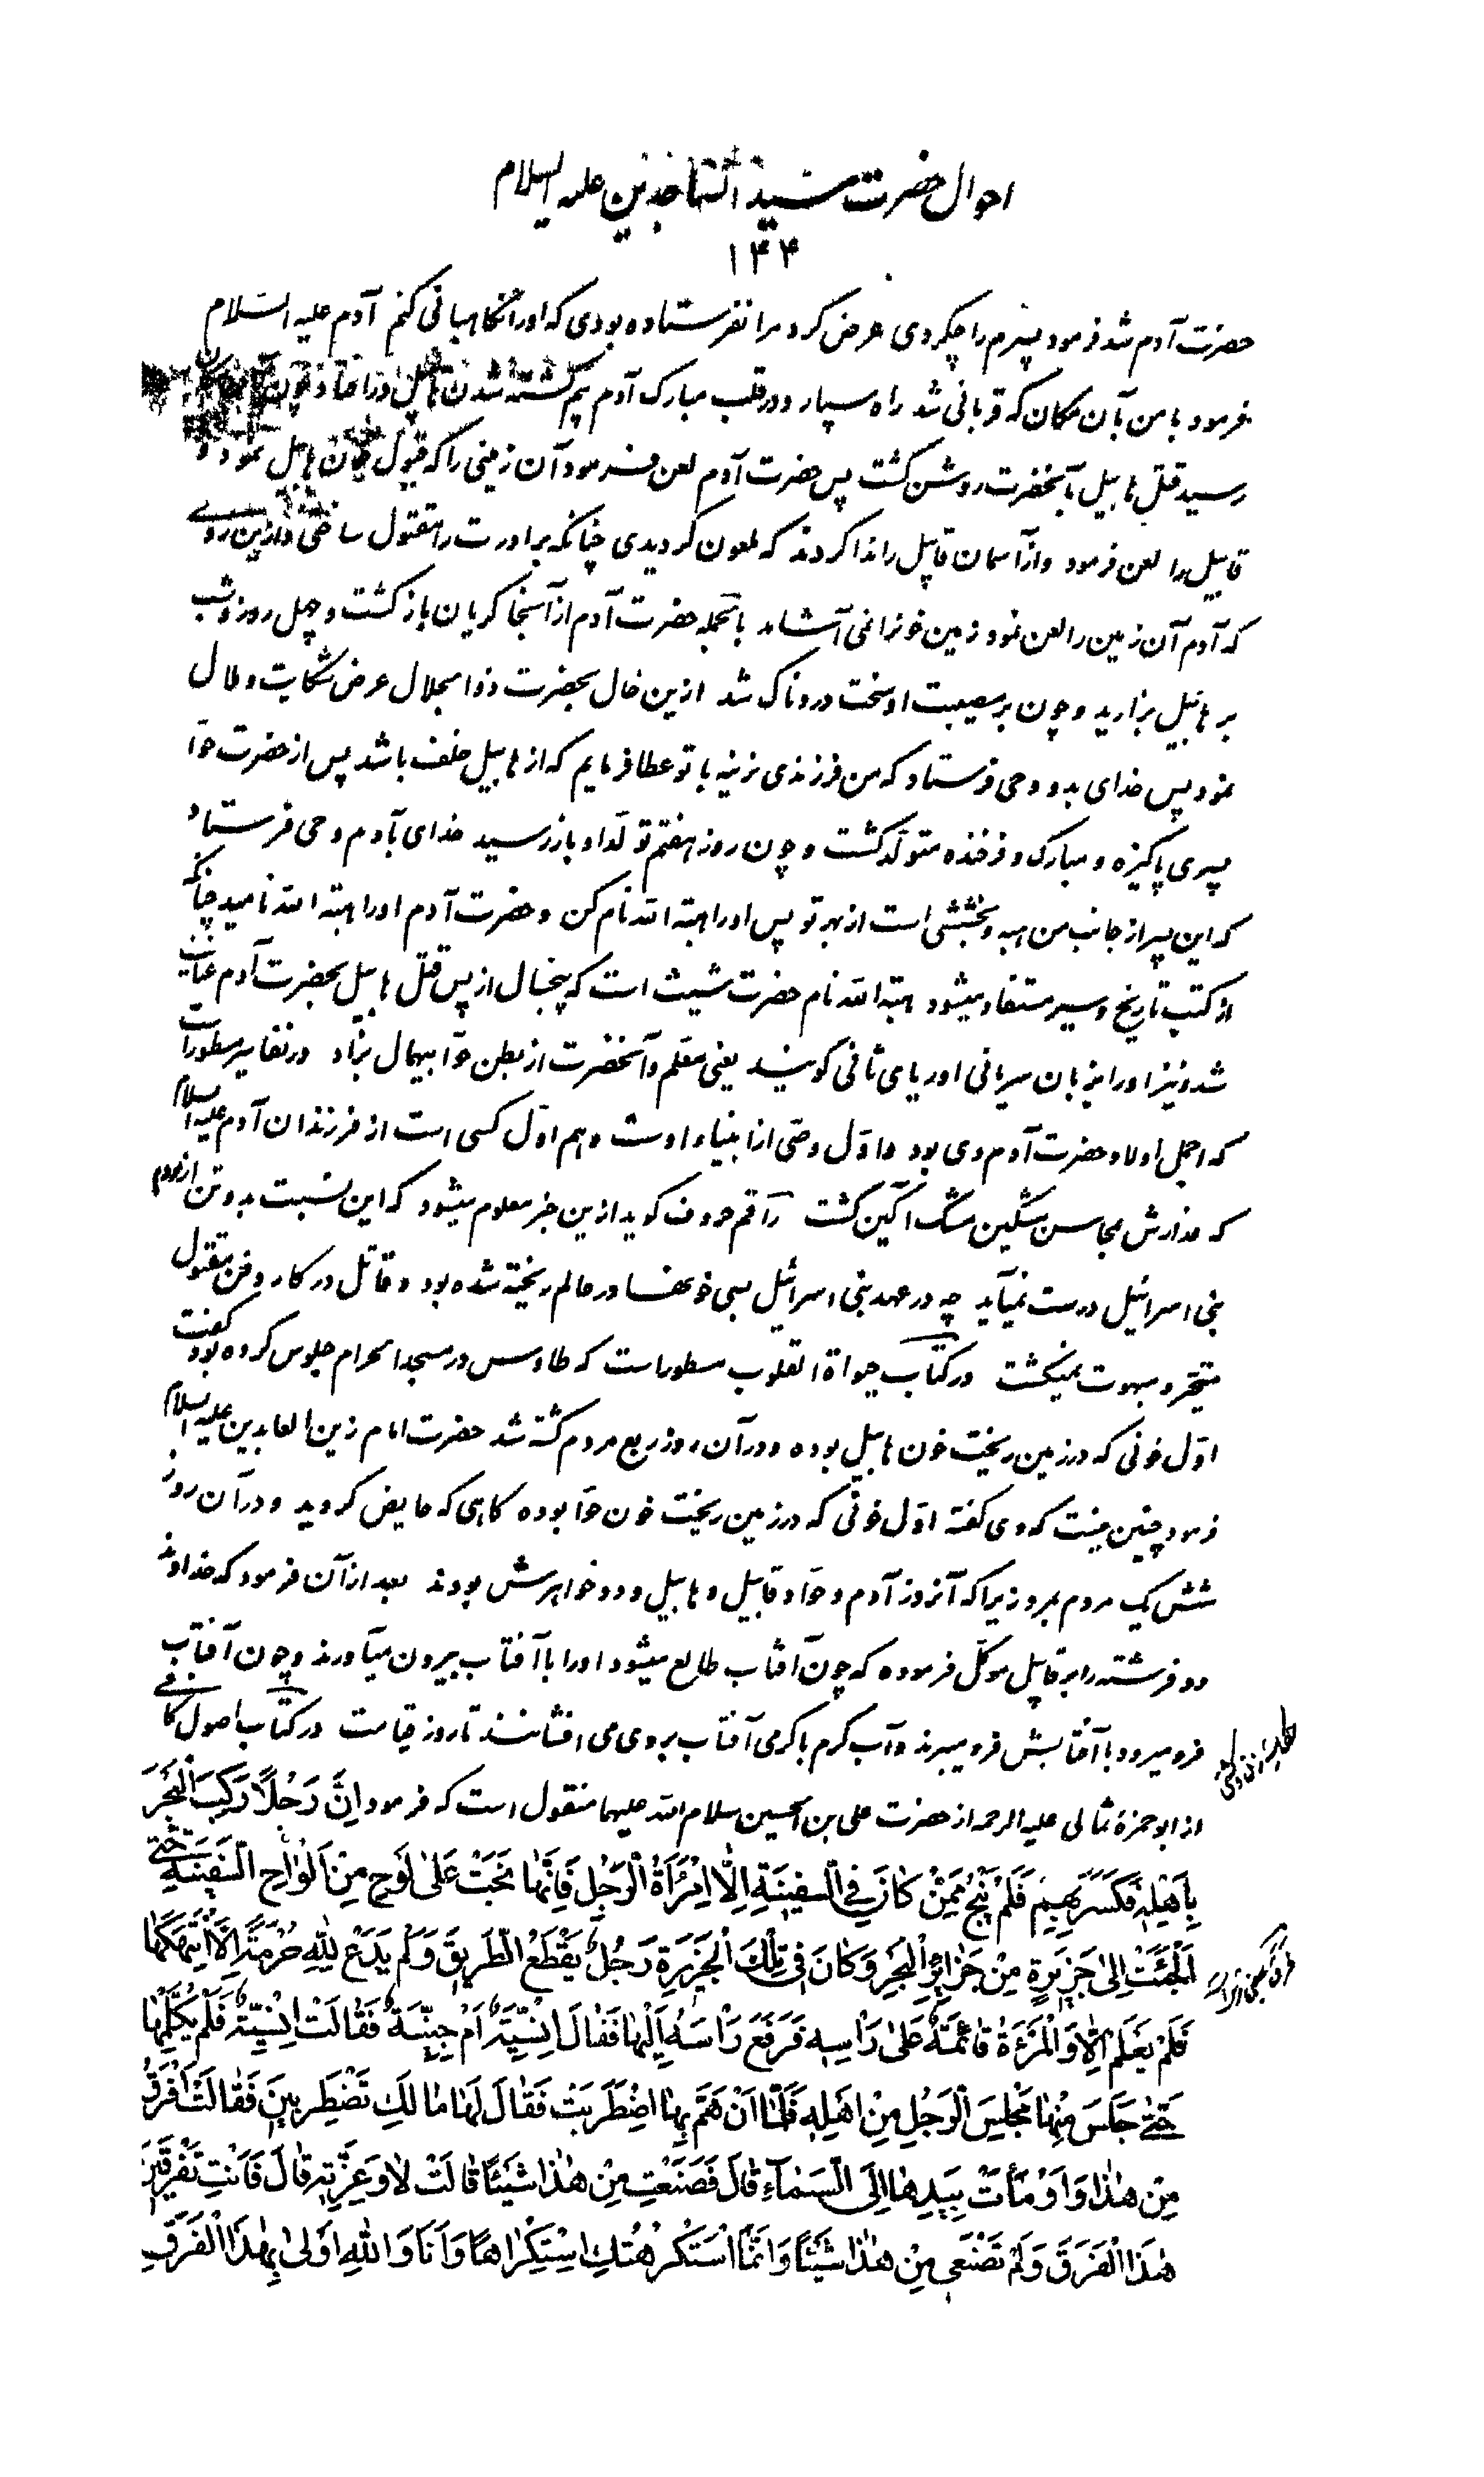 احوال حضرت سید الساجدین علیه السلام
۱۴۴
حضرت آدم شد فرمود پسرم را چکردی عرض کرد مرا نفرستاده بودی که او را نگاهبانی کنم آدم علیه السلام
فرمود با من بآن مکان که قربانی شد راه سپار و در قلب مبارک آدم بیم کشته شدن هابیل در افتاد و چون بآن مکان
رسید قتل هابیل بآنحضرت روشن گشت پس حضرت آدم لعن فرمود آن زمینی را که قبول خون هابیل نمود و
قابیل را لعن فرمود و از آسمان قابیل را ندا کردند که ملعون گردیدی چنانکه برادرت را مقتول ساختی و ازین روی
که آدم آن زمین را لعن نمود زمین خونرا نمی آشامد بالجمله حضرت آدم از آنجا گریان باز گشت و چهل روز و شب
بر هابیل بزارید و چون بر مصیبت او سخت دردناک شد ازین حال بحضرت ذوالجلال عرض شکایت و ملال
نمود پس خدای بدو وحی فرستاد که من فرزندی نرینه با تو عطا فرمایم که از هابیل خلف باشد پس از حضرت حوا
پسری پاکیزه و مبارک و فرخنده متولد گشت و چون روز هفتم تولد او باز رسید خدای بآدم وحی فرستاد
که این پسر از جانب من هبه و بخششی است از بهر تو پس او را هبة الله نام کن و حضرت آدم او را هبة الله نامید چنانکه
از کتب تاریخ و سیر مستفاد میشود هبة الله نام حضرت شیث است که پنجسال از پس قتل هابیل بحضرت آدم عنایت
شد و نیز او را بزبان سریانی اوریای ثانی گویند یعنی معلم و آنحضرت از بطن حوا بیهمال بزاد و در تفاسیر مسطور است
که اجمل اولاد حضرت آدم وی بود و اول وصی از انبیاء اوست و هم اول کسی است از فرزندان آدم علیه السلام
که عذارش بمحاسن مشگین مشگ آگین گشت راقم حروف گوید ازین خبر معلوم میشود که این نسبت بدو تن از مردم
بنی اسرائیل درست نمیآید چه در عهد بنی اسرائیل بسی خونها در عالم ریخته شده بود و قاتل در کار دفن مقتول
متحیر و مبهوت نمیگشت در کتاب حیوة القلوب مسطور است که طاوس در مسجد الحرام جلوس کرده بود گفت
اول خونی که در زمین ریخت خون هابیل بوده و در آن روز ربع مردم کشته شد حضرت امام زین العابدین علیه السلام
فرمود چنین نیست که وی گفته اول خونی که در زمین ریخت خون حوا بوده گاهی که حایض گردید و در آن روز
شش یک مردم بمرد زیرا که آنروز آدم و حوا و قابیل و هابیل و دو خواهرش بودند بعد از آن فرمود که خداوند
دو فرشته را بر قابیل موکل فرموده که چون آفتاب طالع میشود او را با آفتاب بیرون میآورند و چون آفتاب
فرو میرود با آفتابش فرو میبرند و آب گرم با گرمی آفتاب بر وی می افشانند تا روز قیامت در کتاب اصول کافی
از ابو حمزه ثمالی علیه الرحمه از حضرت علی بن الحسین سلام الله علیهما منقول است که فرمود اِنَّ رَجُلًا رَكِبَ الْبَحْرَ
بِاَهْلِهِ فَكُسِرَ بِهِمْ فَلَمْ يَنْجُ مِمَّنْ كانَ فِي السَّفينَةِ اِلَّا امْرَأَةُ الرَّجُلِ فَاِنَّها نَجَتْ عَلى لَوْحٍ مِنْ اَلْواحِ السَّفينَةِ حَتّى
اَلْجَئَتْ اِلى جَزيرَةٍ مِنْ جَزائِرِ الْبَحْرِ وَكانَ في تِلْكَ الْجَزيرَةِ رَجُلٌ يَقْطَعُ الطَّريقَ وَلَمْ يَدَعْ لِلّٰهِ حُرْمَةً اِلَّا انْتَهَكَها
فَلَمْ يَعْلَمْ اِلّا وَالْمَرْءَةُ قائِمَةٌ عَلى رَأْسِهِ فَرَفَعَ رَأْسَهُ اِلَيْها فَقالَ اِنْسِيَّةٌ اَمْ جِنِّيَّةٌ فَقالَتْ اِنْسِيَّةٌ فَلَمْ يُكَلِّمْها
حَتّى جَلَسَ مِنْها مَجْلِسَ الرَّجُلِ مِنْ اَهْلِهِ فَلَمّا اَنْ هَمَّ بِهَا اضْطَرَبَتْ فَقالَ لَها مالَكِ تَضْطَرِبينَ فَقالَتْ اَفْرَقُ
مِنْ هٰذا وَاَوْمَأَتْ بِيَدِها اِلَى السَّمآءِ قالَ فَصَنَعْتِ مِنْ هٰذا شَيْئًا قالَتْ لا وَعِزَّتِهِ قالَ فَاَنْتِ تَفْرَقينَ
هٰذَا الْفَرَقَ وَلَمْ تَصْنَعي مِنْ هٰذا شَيْئًا وَاِنَّمَا اسْتَكْرَهْتُكِ اسْتِكْراهًا وَاَنَا وَاللّٰهِ اَوْلى بِهٰذَا الْفَرَقِ